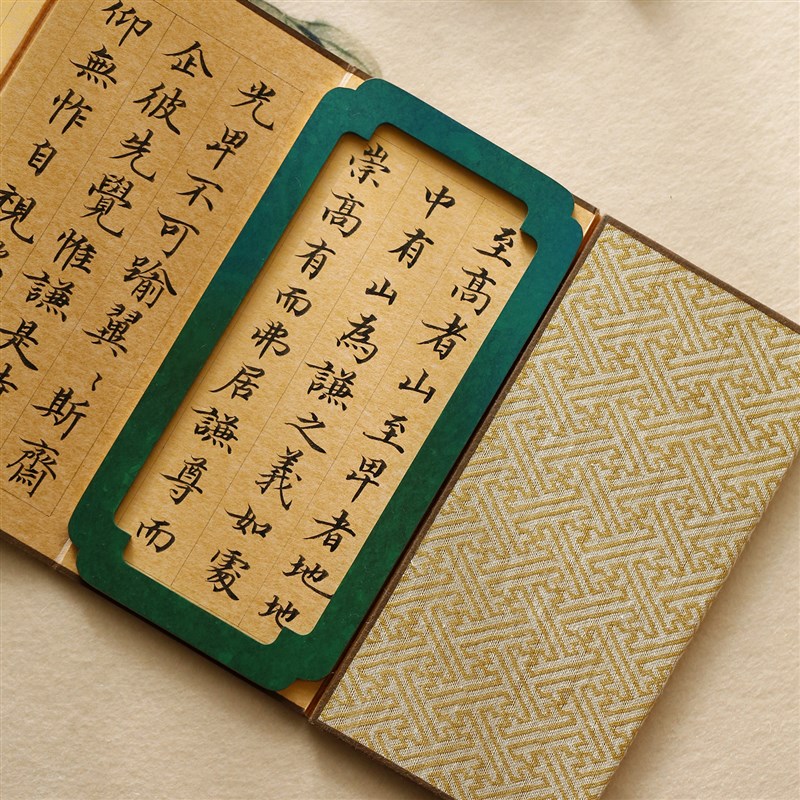 至高者山至卑者地地
中有山為謙之義如處
崇高有而弗居謙尊而
光卑不可踰翼〻斯齋
企彼先覺惟謙是
仰無怍自視